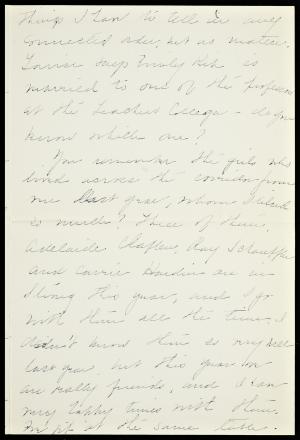 things I have to tell in any
connected order, but no matter.
Louise says Emily Kirk is
married to one of the professors
at the Teachers College - do you
know which one?
You remember the girls who
lived across the corridor from
me last year, whom I liked
so much? Three of them,
Adelaide Claflin, Ray
and Carrie Hardin are in
this year, and I go
with them all the time. I
didn't know them so very well
last year, but this year we
are really friends, and I have
very happy times with them.
We sit at the same table.